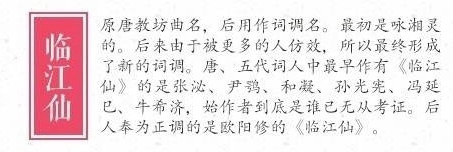 临江仙
原唐教坊曲名，后用作词调名。最初是咏湘灵
的。后来由于被更多的人仿效，所以最终形成
了新的词调。唐、五代词人中最早作有《临江
仙》的是张泌、尹鹗、和凝、孙光宪、冯延
巳、牛希济，始作者到底是谁已无从考证。后
人奉为正调的是欧阳修的《临江仙》。